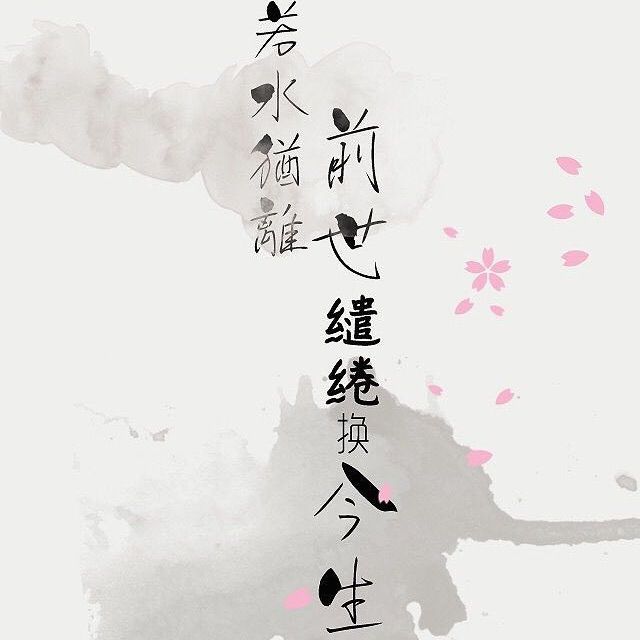 前世繾綣换今生
若水猶離